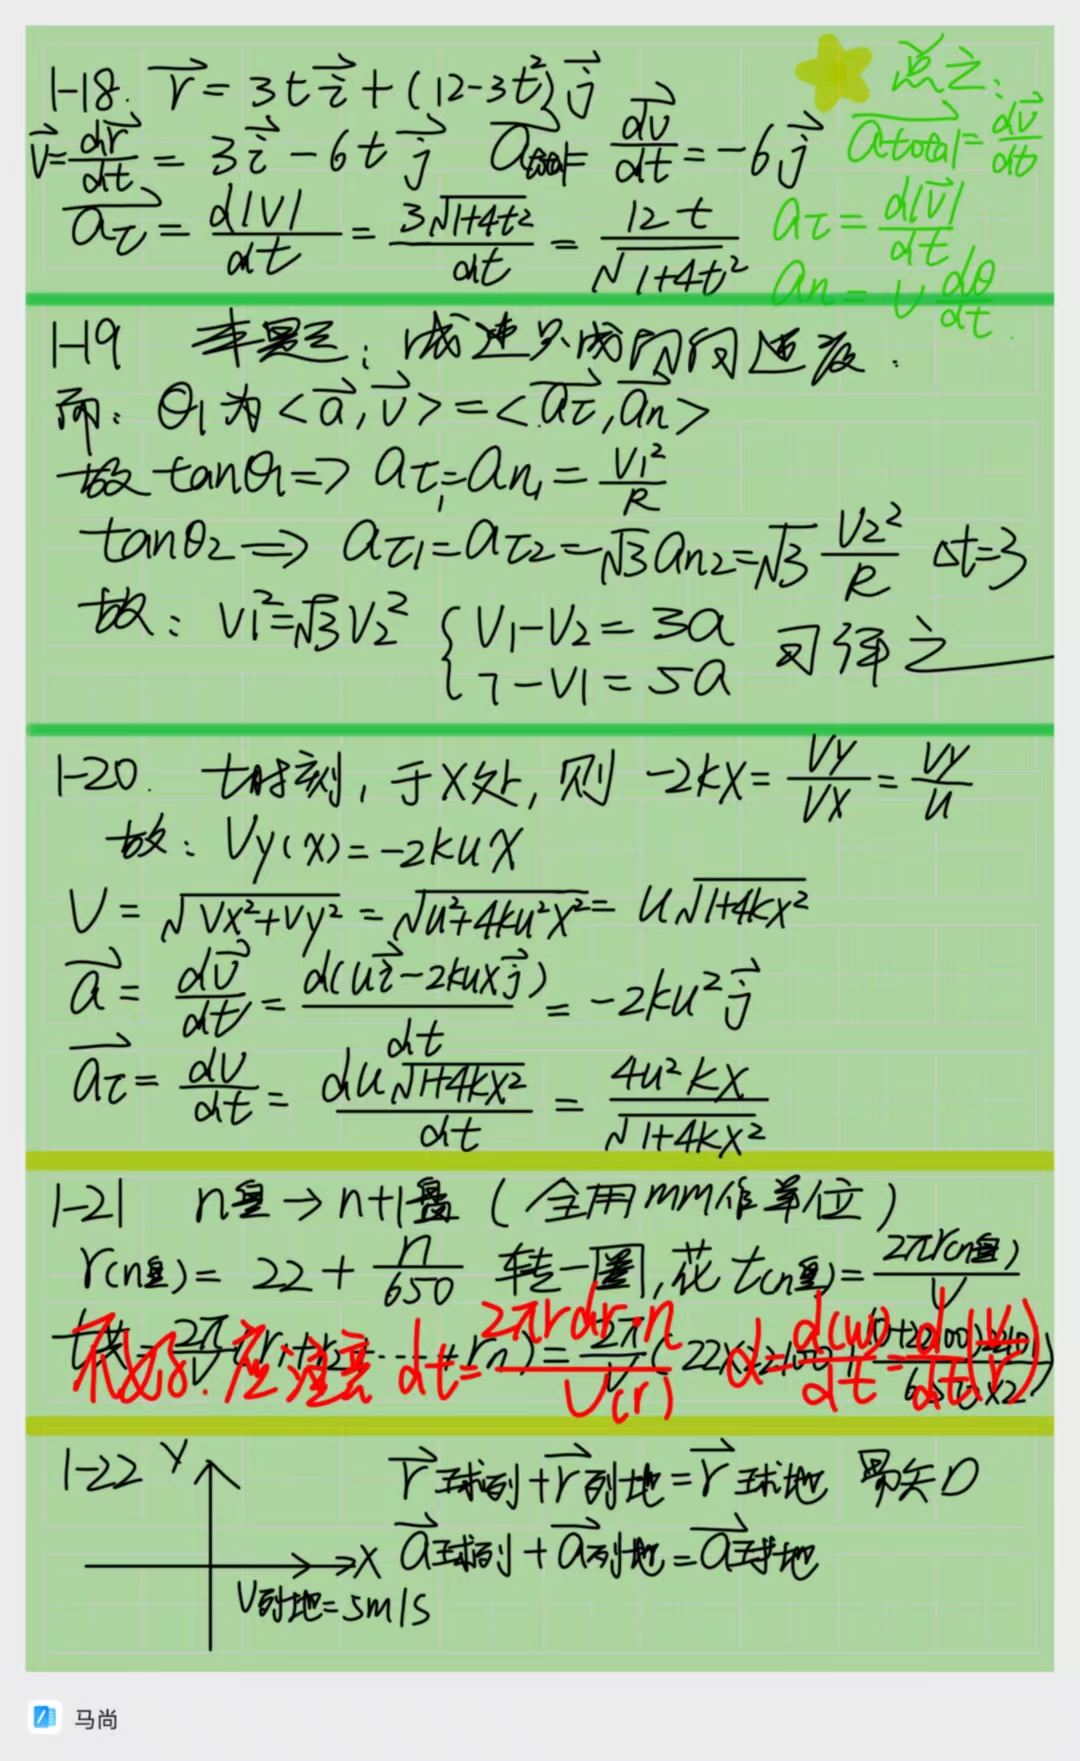 1-18. r⃗ = 3t i⃗ + (12-3t²) j⃗
总之:
v⃗ = dr⃗/dt = 3i⃗ - 6t j⃗   a⃗total = dv⃗/dt = -6j⃗
a⃗total = dv⃗/dt
a⃗τ = d|v|/dt = 3√(1+4t²)/dt = 12t/√(1+4t²)
aτ = d|v⃗|/dt
an = v dθ/dt.
1-19 本题: 减速只减切向速度.
而: θ1为<a⃗,v⃗>=<a⃗τ,a⃗n>
故 tanθ1 => aτ1=an1= V1²/R
tanθ2 => aτ1=aτ2=√3an2=√3 V2²/R Δt=3
故: V1²=√3V2² { V1-V2=3a 可得之
7-V1=5a
1-20. t时刻, 于X处, 则 -2kX= Vy/Vx = Vy/u
故: Vy(x)=-2kuX
V = √(Vx²+Vy²) = √(u²+4ku²X²) = u√(1+4kX²)
a⃗ = dv⃗/dt = d(ui⃗-2kuxj⃗)/dt = -2ku²j⃗
a⃗τ = dv/dt = du√(1+4kX²)/dt = 4u²kX/√(1+4kX²)
1-21 n盘→n+1盘 (全用mm作单位)
r(n盘) = 22 + n/650 转一圈,花 t(n盘) = 2πr(n盘)/V
不好. 应注意 dt = 2πrdr·n/V(r) α = d(w)/dt = d/dt(V/r)
1-22 Y
r⃗球列+r⃗列地=r⃗球地
X a⃗球列+a⃗列地=a⃗球地
V列地=5m/s
马尚